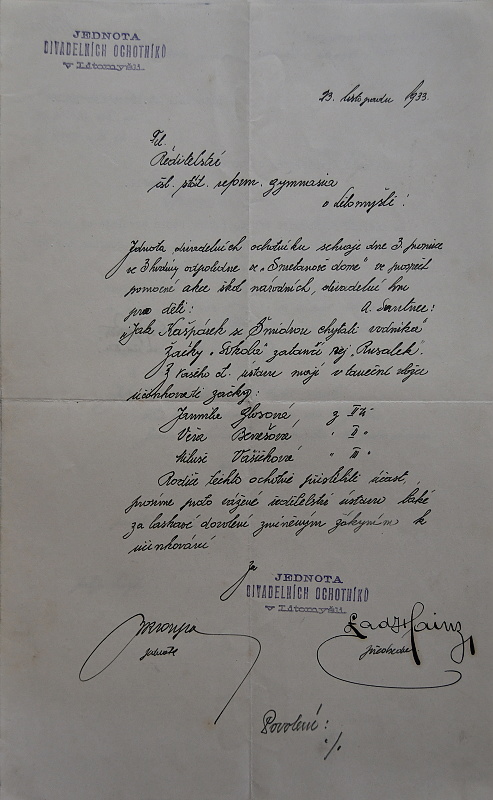 JEDNOTA
DIVADELNÍCH OCHOTNÍKŮ
v Litomyšli.
23. listopadu 1933.
Ředitelství
čsl. stát. reform. gymnasia
v Litomyšli!
Jednota divadelních ochotníků sehraje dne 3. prosince
ve 3 hodiny odpoledne ve „Smetanově domě" ve prospěch
pomocné akce škol národních, divadelní hru
pro děti:
„Jak Kašpárek se Šmidrou chytali vodníka"
žačky „Sokola" zatančí rej „Rusalek".
Z Vašeho ct. ústavu mají v taneční vložce
účinkovati žačky:
Jarmila Glosová z II
Věra Benešová " II "
Miluše Vašíčková " III "
Rodiče těchto ochotně přislíbili účast,
prosíme proto vážené ředitelství ústavu také
za laskavé dovolení zmíněným žákyním k
účinkování
Za
JEDNOTA
DIVADELNÍCH OCHOTNÍKŮ
v Litomyšli.
jednatel
Lad. Hainz
předseda
Povolení: